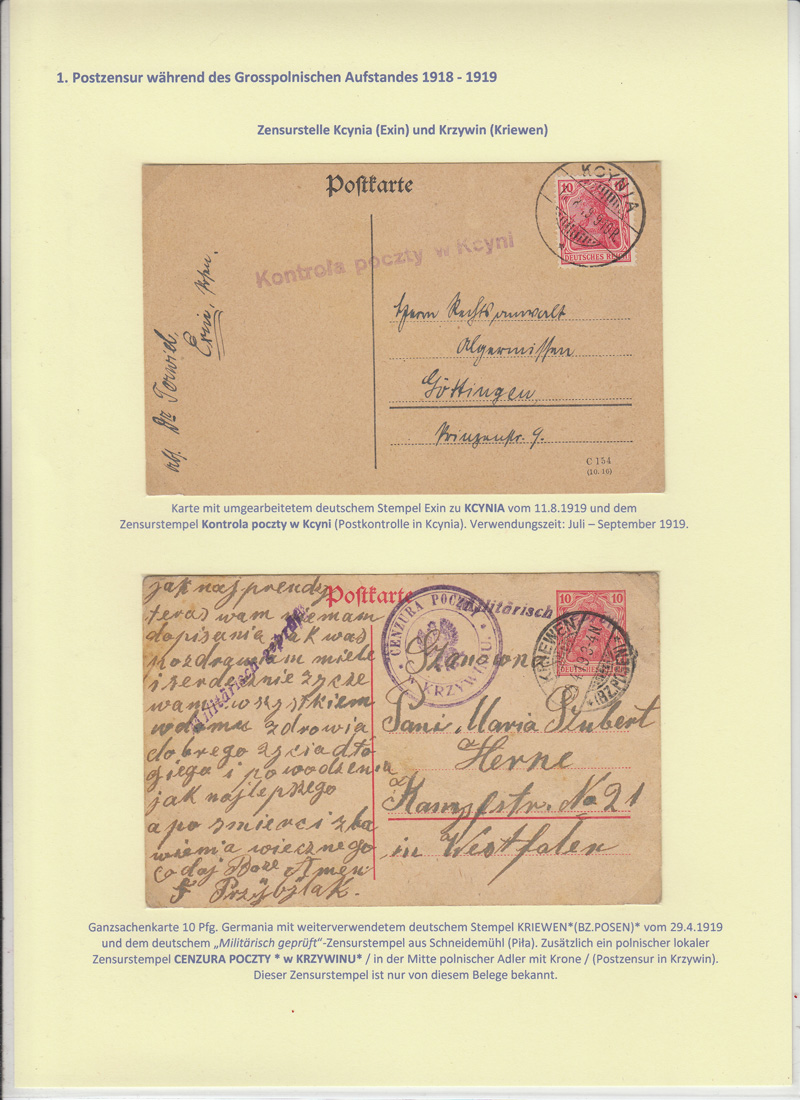 1. Postzensur während des Grosspolnischen Aufstandes 1918 - 1919
Zensurstelle Kcynia (Exin) und Krzywin (Kriewen)
Postkarte
KCYNIA
10
DEUTSCHES REICH
Kontrola poczty w Kcyni
Herrn Rechtsanwalt
Algermissen
Göttingen
Prinzenstr. 9.
abs. Dr Torwiel.
Exin,
C 154
(10. 16)
Karte mit umgearbeitetem deutschem Stempel Exin zu KCYNIA vom 11.8.1919 und dem
Zensurstempel Kontrola poczty w Kcyni (Postkontrolle in Kcynia). Verwendungszeit: Juli – September 1919.
Postkarte
CENZURA POCZTY
* w KRZYWINU *
Militärisch
10 10
DEUTSCHES REICH
KRIEWEN
*(BZ.POSEN)*
jak naj prendzy
teras wam niemam
dopisania jak was
pozdrawiam miele
i serdecznie zycze
wam wszystkiem
wdomu zdrowia
dobrego zycia dło
giego i powodzenia
jak najlepszego
a po smierci zba
wienia wiecznego
co daj Boze Amen
F Przybylak.
Militärisch geprüft
Szanowna
Pani Maria Stubert
Herne
Kampfstr. No 21
in Westfalen
Ganzsachenkarte 10 Pfg. Germania mit weiterverwendetem deutschem Stempel KRIEWEN*(BZ.POSEN)* vom 29.4.1919
und dem deutschem „Militärisch geprüft“-Zensurstempel aus Schneidemühl (Piła). Zusätzlich ein polnischer lokaler
Zensurstempel CENZURA POCZTY * w KRZYWINU* / in der Mitte polnischer Adler mit Krone / (Postzensur in Krzywin).
Dieser Zensurstempel ist nur von diesem Belege bekannt.